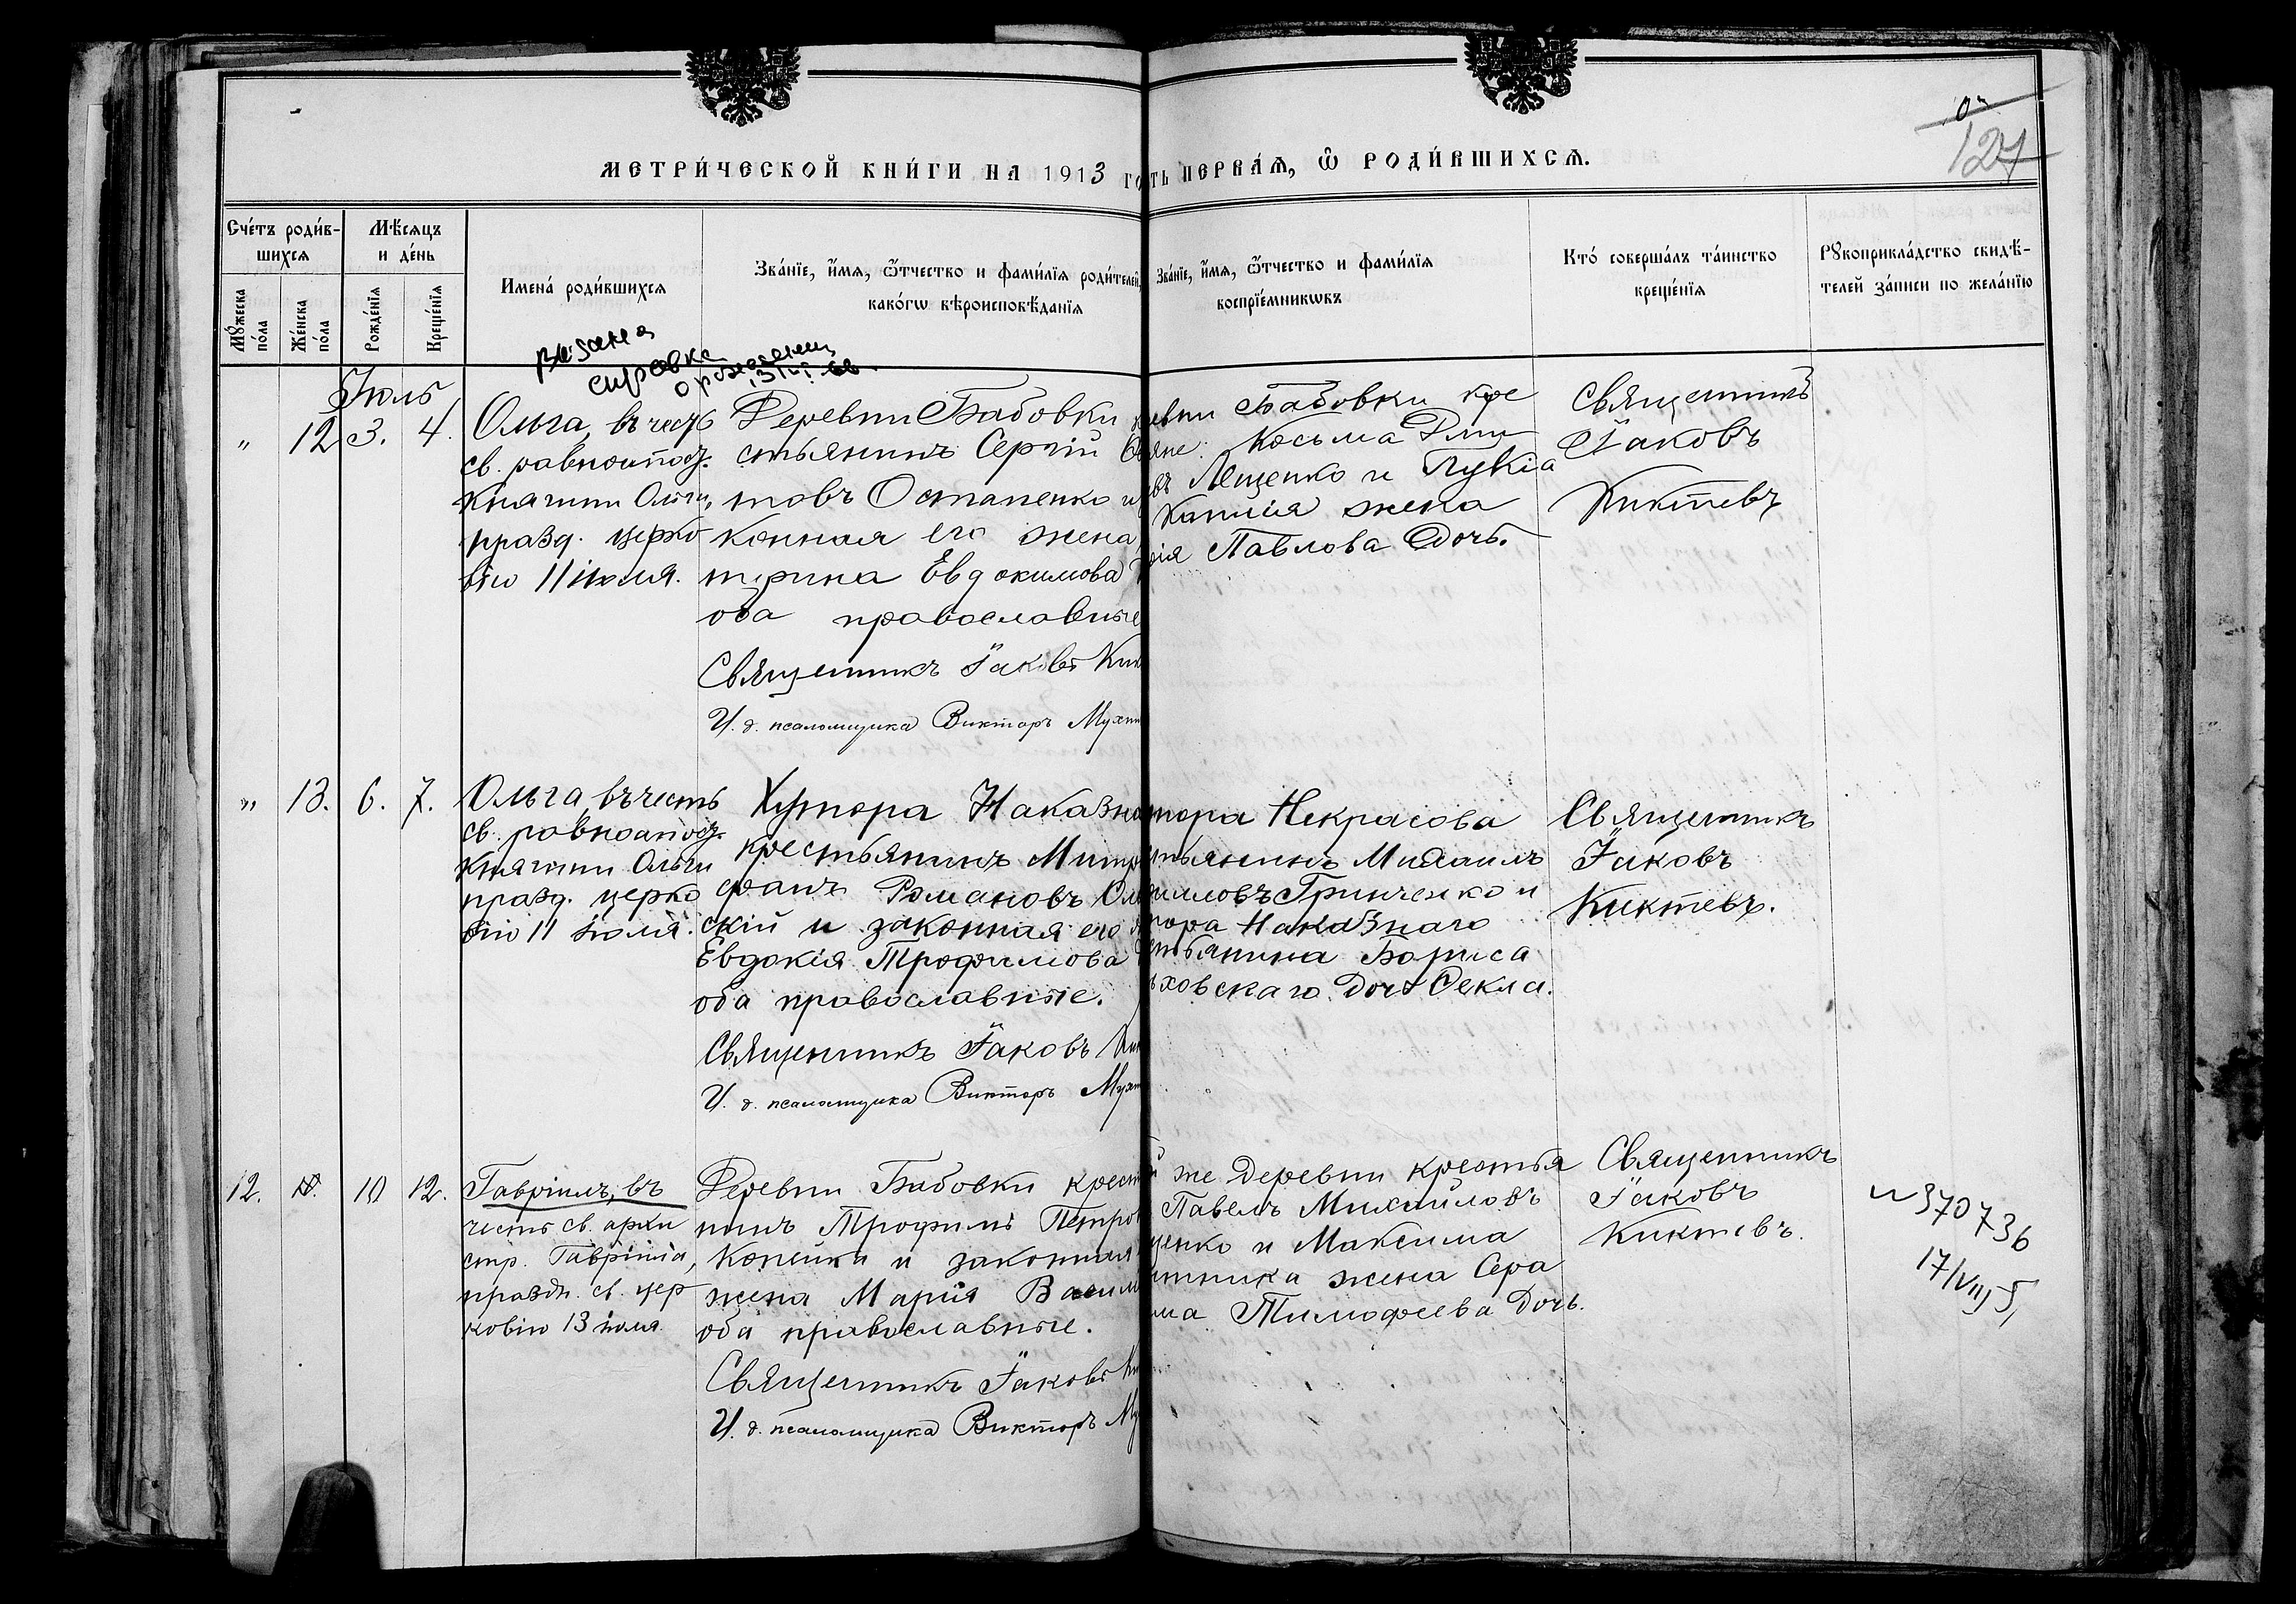 127
МЕТРИ́ЧЕСКОЙ КНИ́ГИ НА 1913 ГО
ТЬ ПЕРВА́Ѧ, Ѿ РОДИ́ВШИХСѦ.
Сче́тъ роди́в-
шихсѧ
Мѣ́сѧцъ
и де́нь
Мꙋ́жеска по́ла
Же́нска по́ла
Рожде́нїѧ
Креще́нїѧ
Имена́ роди́вшихсѧ
Зва́нїе, и́мѧ, ѻ́тчество и фами́лїѧ роди́телей,
како́гѡ вѣроисповѣ́данїѧ
Зва́нїе, и́мѧ, ѻ́тчество и фами́лїѧ
воспрїе́мникѡвъ
Кто́ соверша́лъ та́инство
креще́нїѧ
Рꙋкоприкла́дство свидѣ́-
телей за́писи по жела́нїю
справка
Іюль
" 12 3. 4.
Ольга, въ честь
св. равноапос.
Княгини Ольги,
празд. церко
вію 11 іюля.
Деревни Бабовки
стьянинъ Сергій
товъ Остапенко и
конная его жена
терина Евдокимова
оба православные
Священникъ Іаковъ
И. д. псаломщика Викторъ
ревни Бабовки кре
яне: Косьма Дми
въ Лещенко и Лукіа
жена
Павлова Дочь.
Священникъ
Іаковъ
Киктевъ
" 13. 6. 7.
Ольга, въ честь
св. равноапос.
Княгини Ольги
празд. церко
вію 11 іюля.
Хутора Наказна
крестьянинъ Митро
фанъ Романовъ
скій и законная его
Евдокія Трофимова
оба православные.
Священникъ Іаковъ
И. д. псаломщика Викторъ
тора Некрасова
стьянинъ Михаилъ
иловъ Гринченко и
тора Наказнаго
стьянина Бориса
ховскаго дочь Ѳекла.
Священникъ
Іаковъ
Киктевъ.
12. 10 12.
Гавріилъ, въ
честь св. архи
стр. Гавріила,
праздн. св. цер
ковію 13 іюля
Деревни Бабовки крест
нинъ Трофимъ Петров
Копейка и законная
жена Марія Васил
оба православные.
Священникъ Іаковъ
И. д. псаломщика Викторъ
же деревни крестья
Павелъ Михайловъ
щенко и Максима
жена Сера
ма Тимофеева дочь.
Священникъ
Іаковъ
Киктевъ.
370736
17/VII